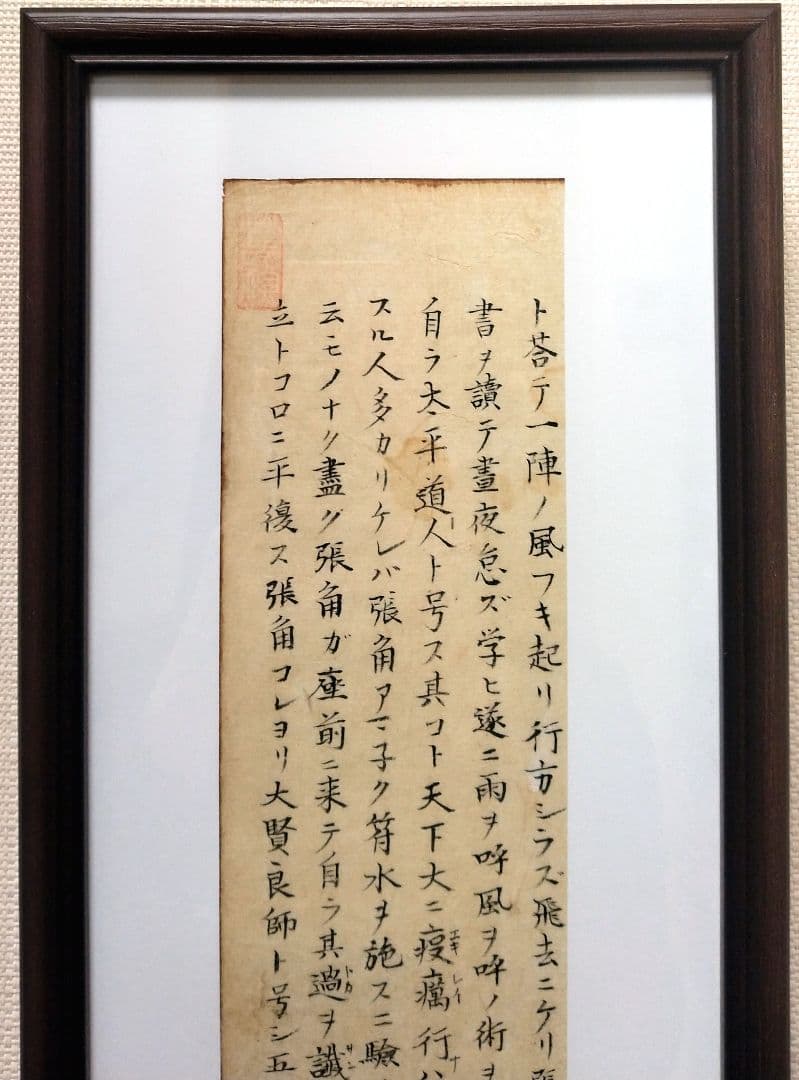 ト荅テ一陣ノ風フキ起リ行方シラズ飛去ニケリ張
書ヲ讀テ晝夜怠ズ学ヒ遂ニ雨ヲ呼風ヲ呼ノ術ヲ
自ラ太平道人ト号ス其コト天下大ニ疫癘行ハ
エキレイ ナ
スル人多カリケレバ張角アマ子ク符水ヲ施スニ驗
云モノナク盡ク張角ガ座前ニ来テ自ラ其過ヲ讖
トガ サン
立トコロニ平復ス張角コレヨリ大賢良師ト号シ五